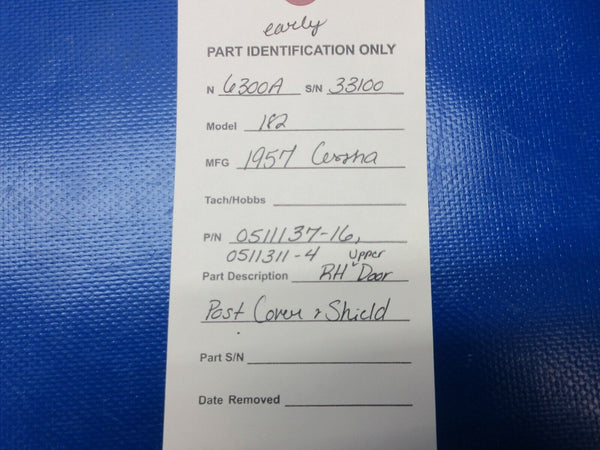 early
PART IDENTIFICATION ONLY
N 6300A S/N 33100
Model 182
MFG 1957 Cessna
Tach/Hobbs
P/N 0511137-16,
0511311-4 Upper
Part Description RH Door
Post Cover & Shield
Part S/N
Date Removed